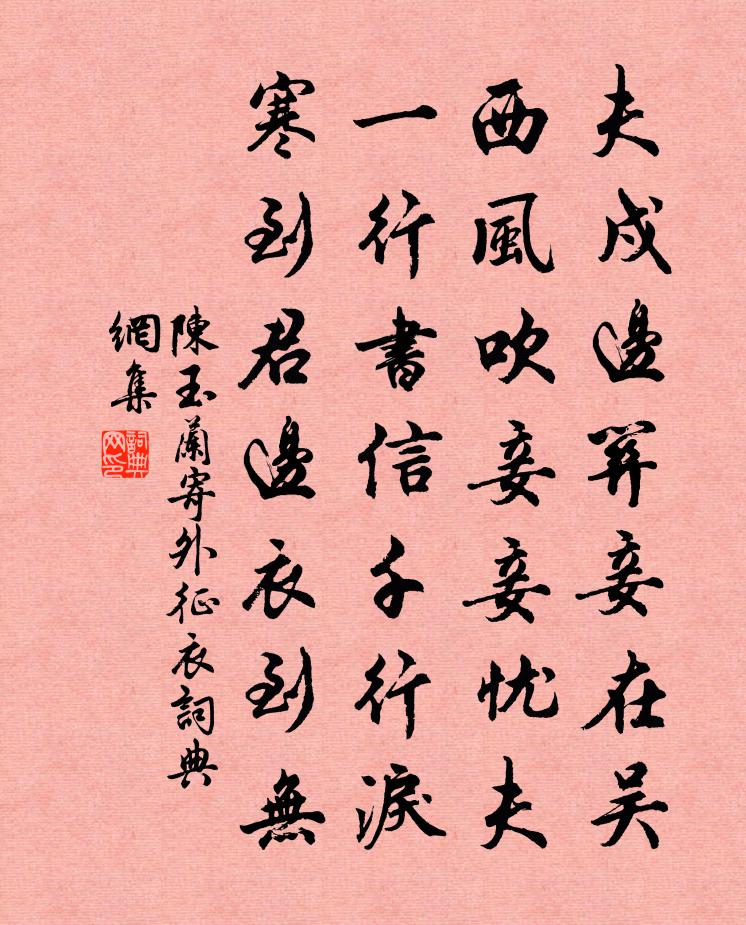 夫戍邊關妾在吳
西風吹妾妾忧夫
一行書信千行淚
寒到君邊衣到無
陳玉蘭寄外征衣詞典
網集
詞典
网印